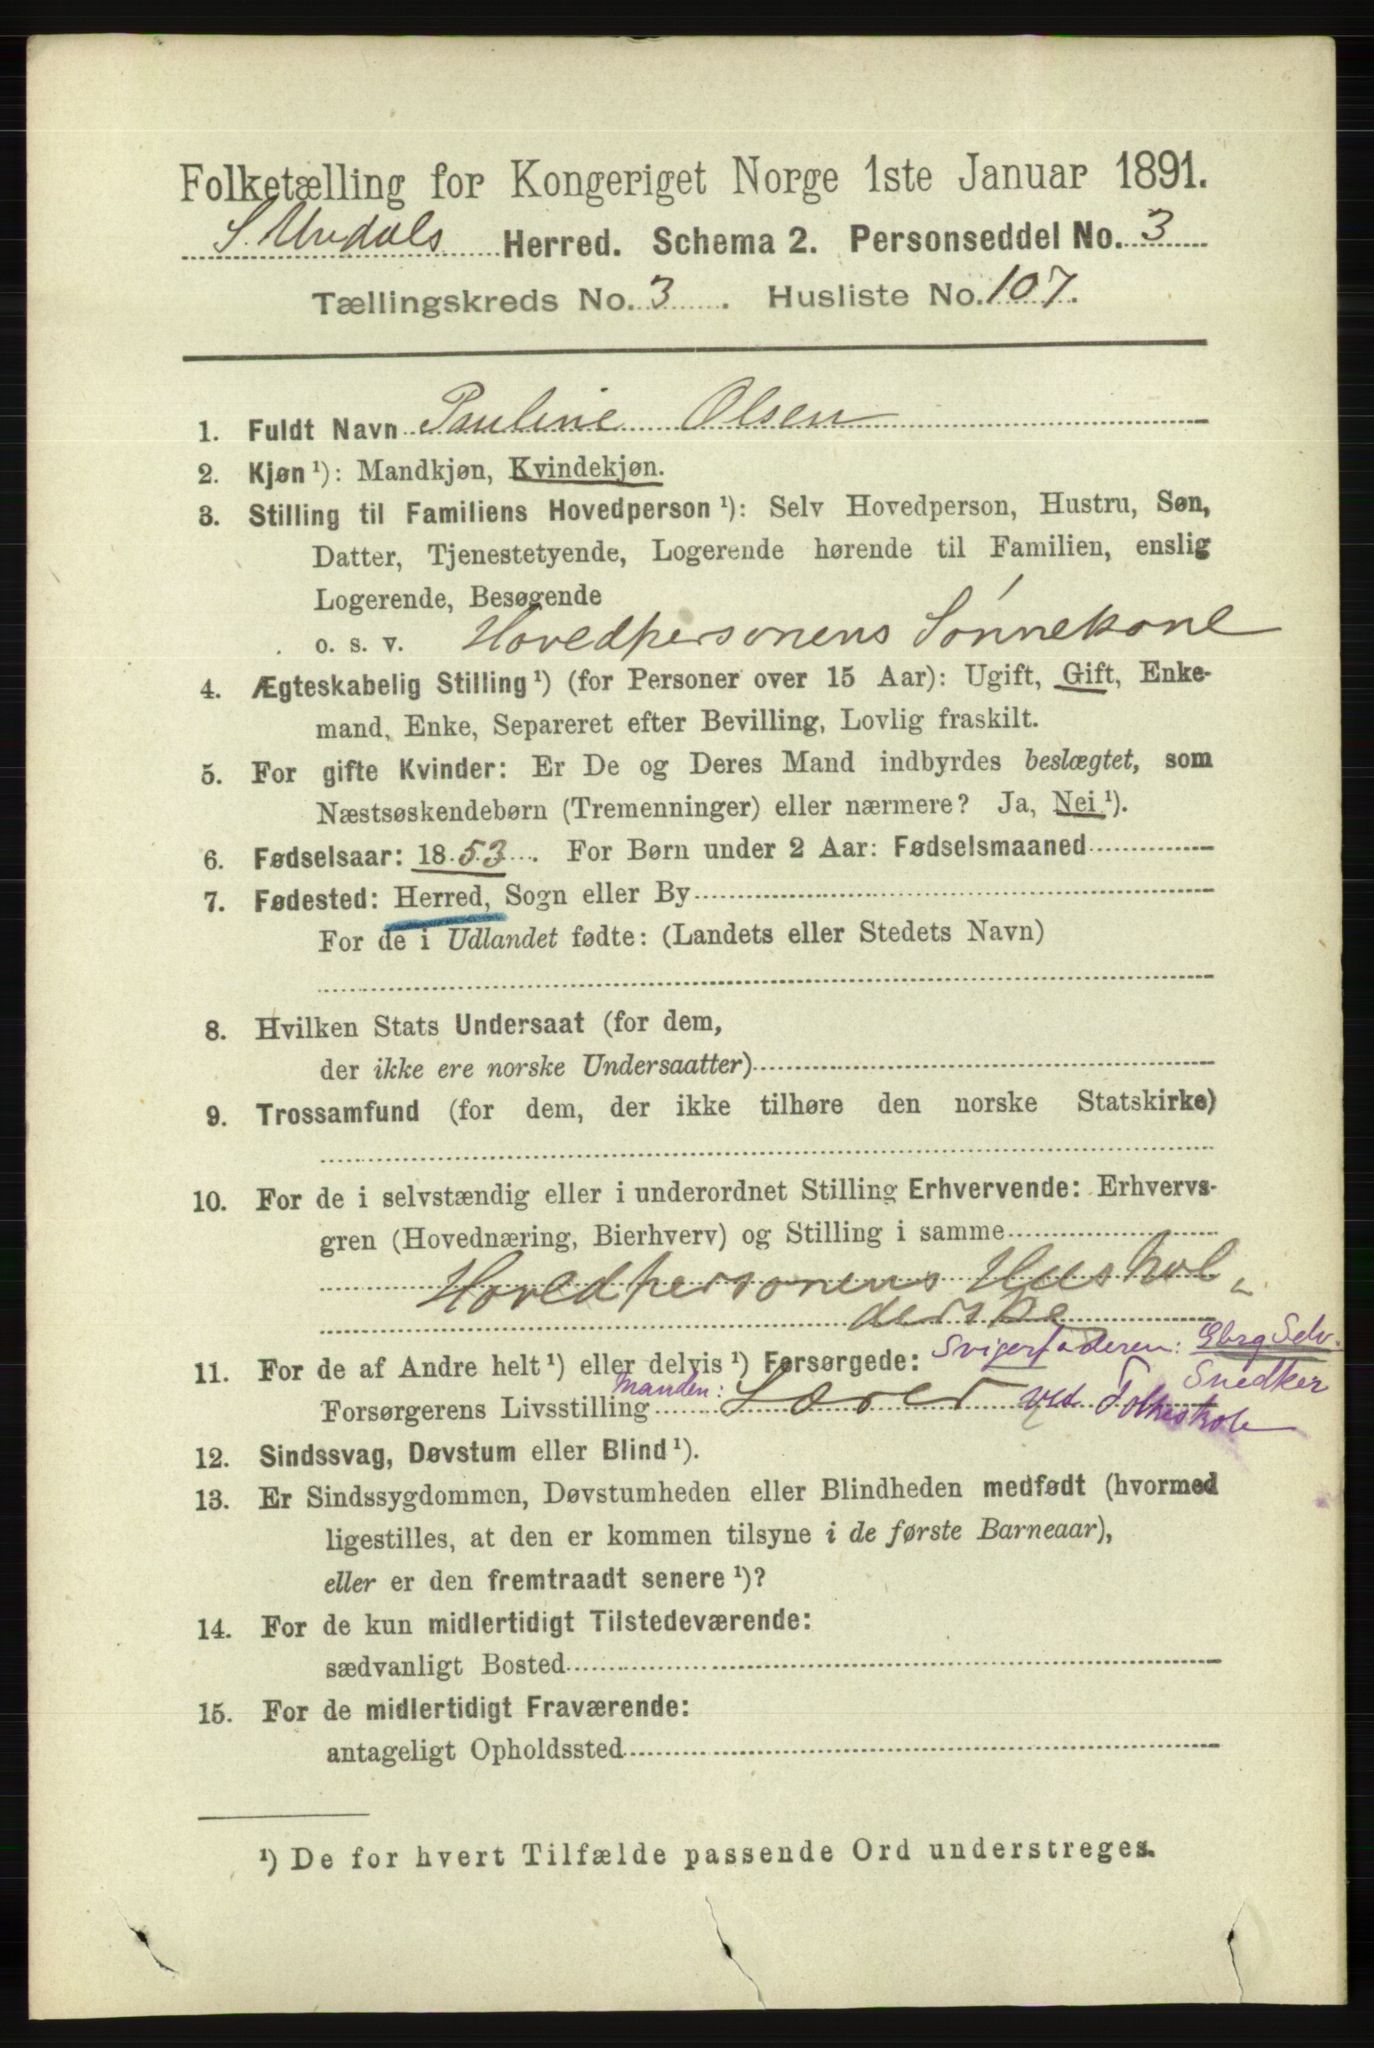 Folketælling for Kongeriget Norge 1ste Januar 1891.
S. Undals Herred. Schema 2. Personseddel No. 3
Tællingskreds No. 3. Husliste No. 107.
1. Fuldt Navn Pauline Olsen
2. Kjøn ¹): Mandkjøn, Kvindekjøn.
3. Stilling til Familiens Hovedperson ¹): Selv Hovedperson, Hustru, Søn,
Datter, Tjenestetyende, Logerende hørende til Familien, enslig
Logerende, Besøgende
o. s. v. Hovedpersonens Sønnekone
4. Ægteskabelig Stilling ¹) (for Personer over 15 Aar): Ugift, Gift, Enke-
mand, Enke, Separeret efter Bevilling, Lovlig fraskilt.
5. For gifte Kvinder: Er De og Deres Mand indbyrdes beslægtet, som
Næstsøskendebørn (Tremenninger) eller nærmere? Ja, Nei ¹).
6. Fødselsaar: 1853. For Børn under 2 Aar: Fødselsmaaned
7. Fødested: Herred, Sogn eller By
For de i Udlandet fødte: (Landets eller Stedets Navn)
8. Hvilken Stats Undersaat (for dem,
der ikke ere norske Undersaatter)
9. Trossamfund (for dem, der ikke tilhøre den norske Statskirke)
10. For de i selvstændig eller i underordnet Stilling Erhvervende: Erhvervs-
gren (Hovednæring, Bierhverv) og Stilling i samme
Hovedpersonens Hushol-
derske
Svigerfaderen: Gbrg Selv.
11. For de af Andre helt ¹) eller delvis ¹) Forsørgede: Snedker
Forsørgerens Livsstilling Manden: Lærer ved Folkeskole
12. Sindssvag, Døvstum eller Blind ¹).
13. Er Sindssygdommen, Døvstumheden eller Blindheden medfødt (hvormed
ligestilles, at den er kommen tilsyne i de første Barneaar),
eller er den fremtraadt senere ¹)?
14. For de kun midlertidigt Tilstedeværende:
sædvanligt Bosted
15. For de midlertidigt Fraværende:
antageligt Opholdssted
¹) De for hvert Tilfælde passende Ord understreges.